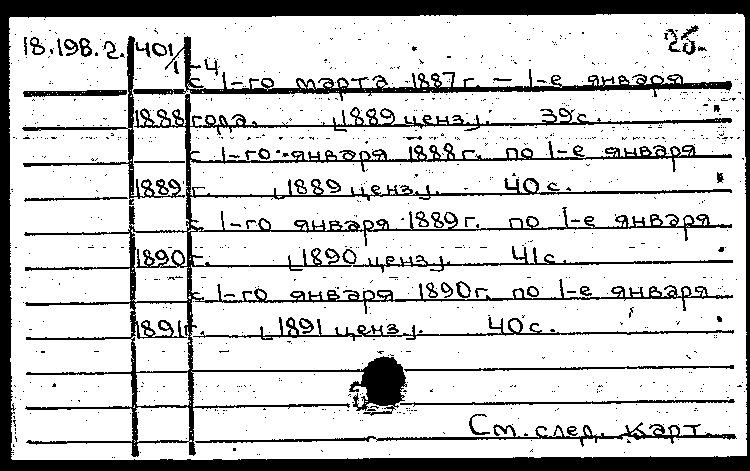 18.198.2. 401/1-4 2б.
с 1-го марта 1887г. - 1-е января
1888 года. [1889 ценз.]. 39с.
с 1-го января 1888г. по 1-е января
1889 г. [1889 ценз.]. 40с.
с 1-го января 1889г. по 1-е января
1890 г. [1890 ценз.]. 41с.
с 1-го января 1890г. по 1-е января
1891 г. [1891 ценз.]. 40с.
См. след. карт.